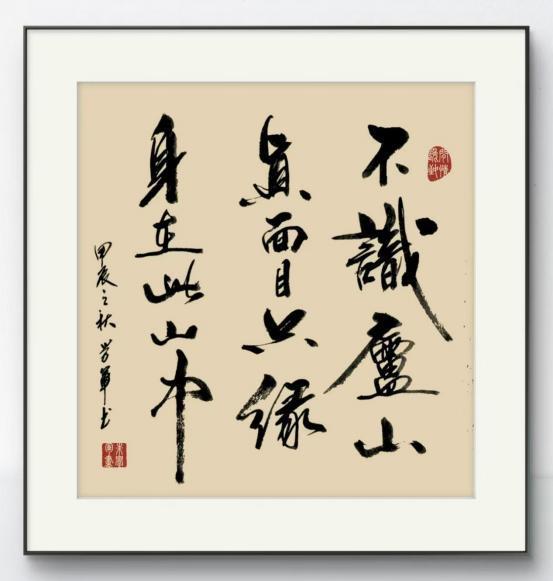 不識廬山
真面目只緣
身在此山中
甲辰之秋 学軍书